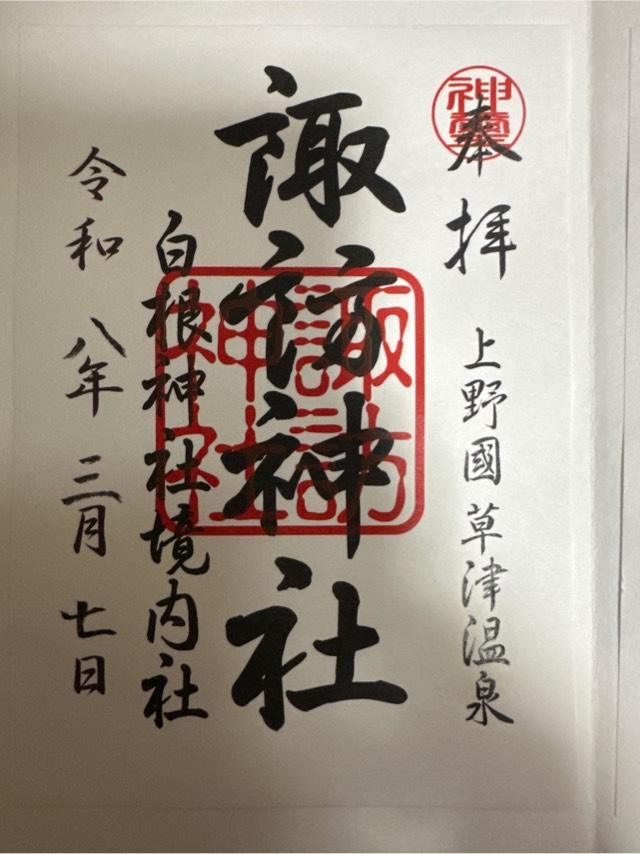 奉拝
上野國草津温泉
諏訪神社
白根神社境内社
令和八年三月七日